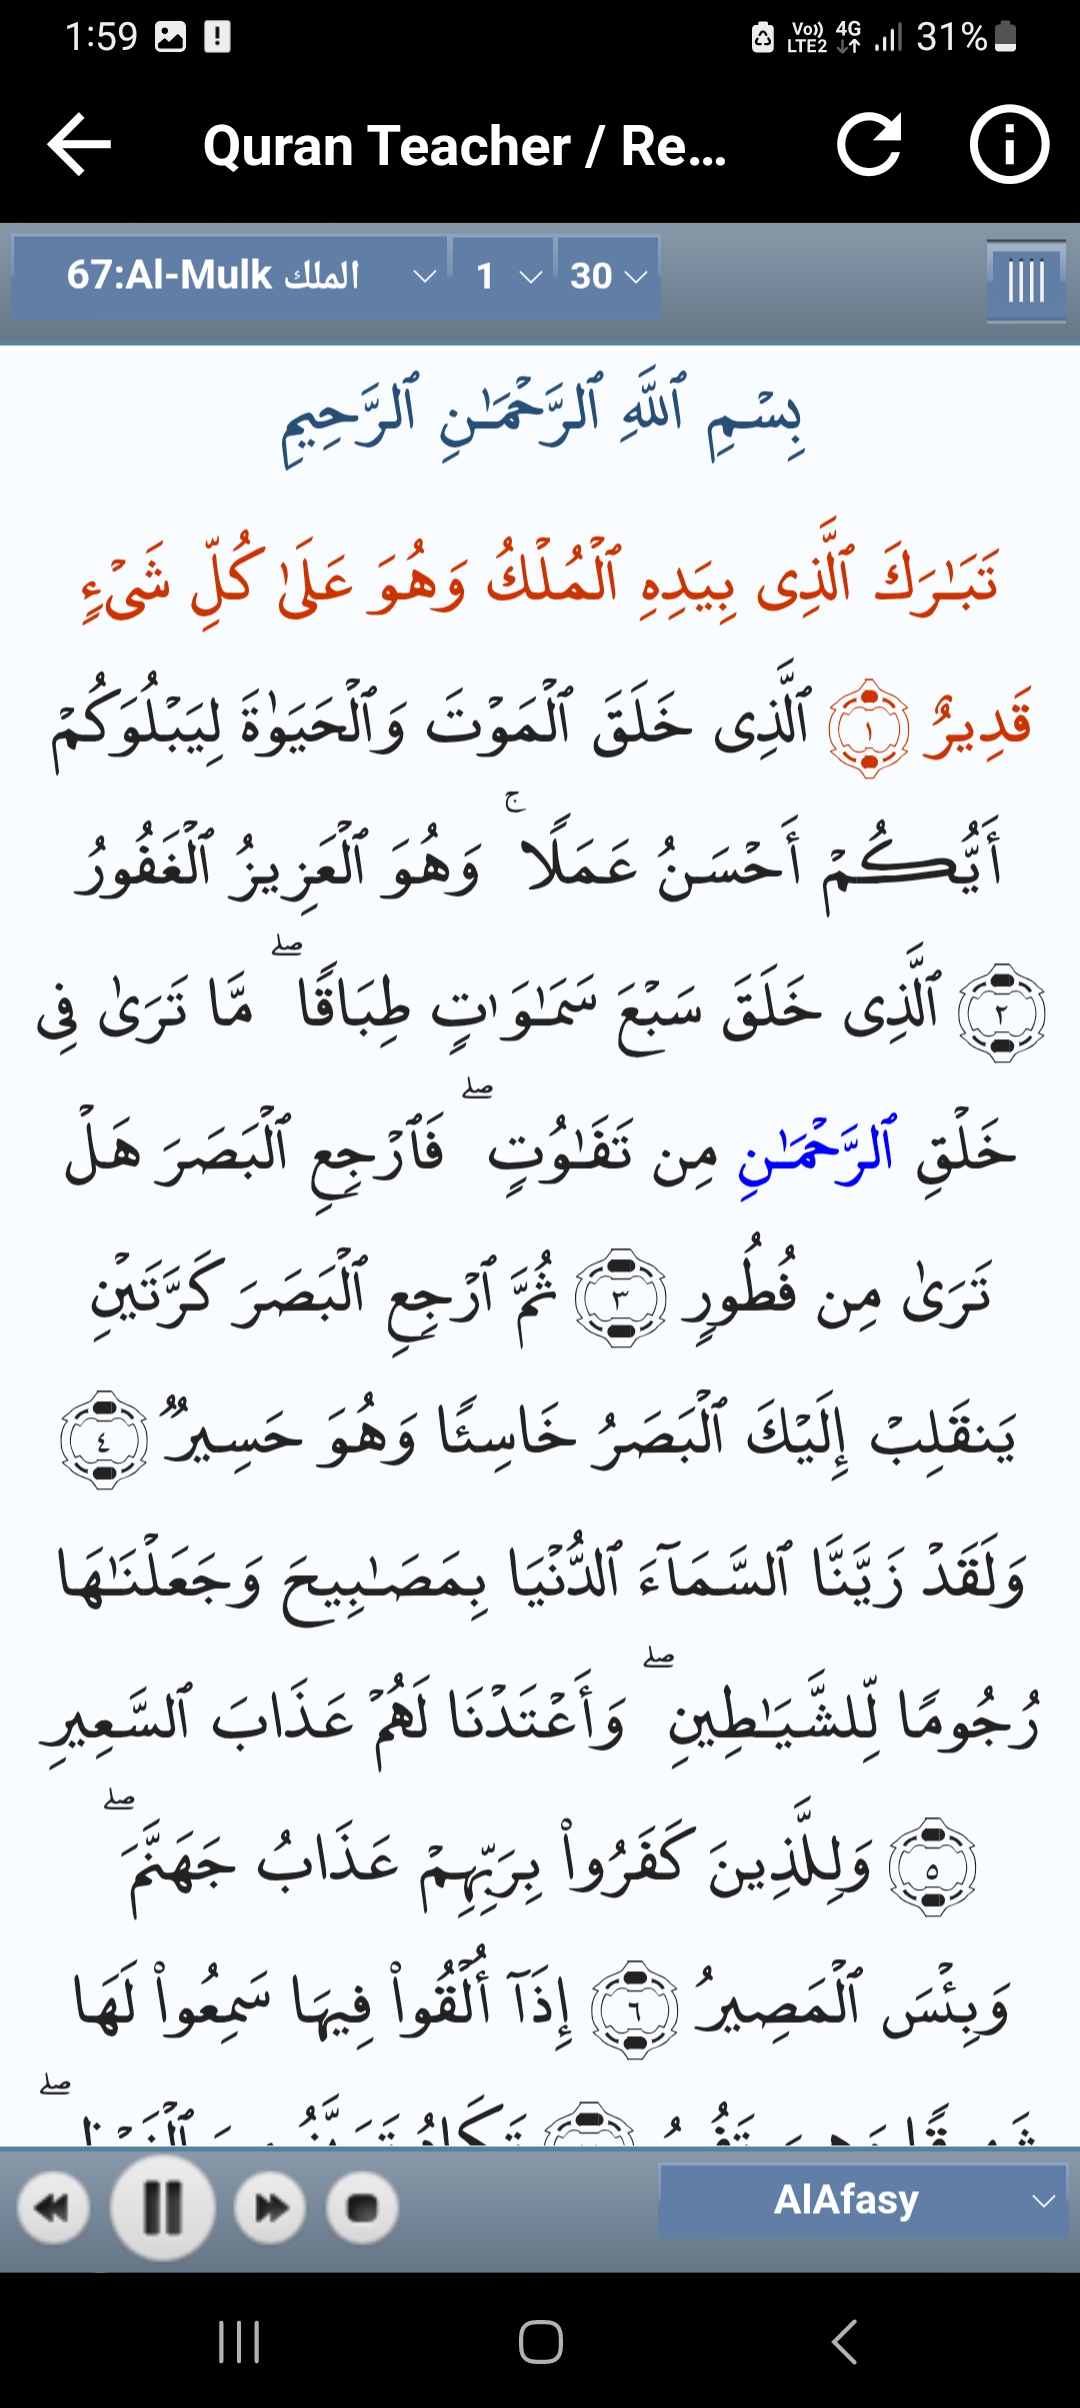 1:59
Vo)) LTE2 4G 31%
Quran Teacher / Re...
67:Al-Mulk الملك 1 30
بِسْمِ ٱللَّهِ ٱلرَّحْمَٰنِ ٱلرَّحِيمِ
تَبَٰرَكَ ٱلَّذِى بِيَدِهِ ٱلْمُلْكُ وَهُوَ عَلَىٰ كُلِّ شَىْءٍ
قَدِيرٌ ١ ٱلَّذِى خَلَقَ ٱلْمَوْتَ وَٱلْحَيَوٰةَ لِيَبْلُوَكُمْ
أَيُّكُمْ أَحْسَنُ عَمَلًا ۚ وَهُوَ ٱلْعَزِيزُ ٱلْغَفُورُ
٢ ٱلَّذِى خَلَقَ سَبْعَ سَمَٰوَٰتٍ طِبَاقًا ۖ مَّا تَرَىٰ فِى
خَلْقِ ٱلرَّحْمَٰنِ مِن تَفَٰوُتٍ ۖ فَٱرْجِعِ ٱلْبَصَرَ هَلْ
تَرَىٰ مِن فُطُورٍ ٣ ثُمَّ ٱرْجِعِ ٱلْبَصَرَ كَرَّتَيْنِ
يَنقَلِبْ إِلَيْكَ ٱلْبَصَرُ خَاسِئًا وَهُوَ حَسِيرٌ ٤
وَلَقَدْ زَيَّنَّا ٱلسَّمَآءَ ٱلدُّنْيَا بِمَصَٰبِيحَ وَجَعَلْنَٰهَا
رُجُومًا لِّلشَّيَٰطِينِ ۖ وَأَعْتَدْنَا لَهُمْ عَذَابَ ٱلسَّعِيرِ
٥ وَلِلَّذِينَ كَفَرُوا۟ بِرَبِّهِمْ عَذَابُ جَهَنَّمَ ۖ
وَبِئْسَ ٱلْمَصِيرُ ٦ إِذَآ أُلْقُوا۟ فِيهَا سَمِعُوا۟ لَهَا
AlAfasy